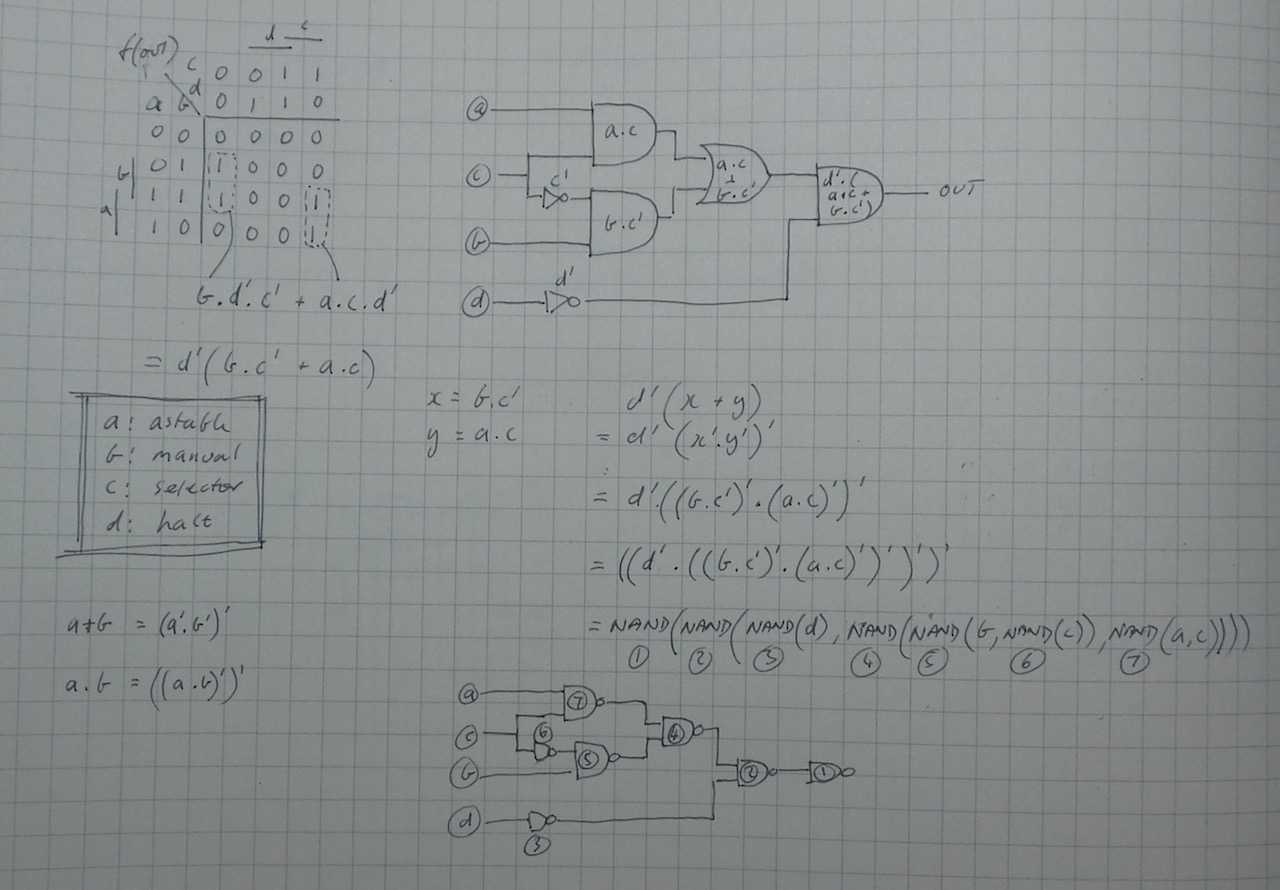 d c
f(out) c 0 0 1 1
d
a b 0 1 1 0
0 0 0 0 0 0
b 0 1 1 0 0 0
a 1 1 1 0 0 1
1 0 0 0 0 1
b.d'.c' + a.c.d'
= d'(b.c' + a.c)
a: astable
b: manual
c: selector
d: halt
a+b = (a'.b')'
a.b = ((a.b)')'
a
c
b
d
a.c
c'
b.c'
d'
a.c
+
b.c'
d'.(
a.c +
b.c')
OUT
x = b.c'
y = a.c
d'(x + y)
= d'(x'.y')'
= d'.((b.c')'.(a.c)')'
= ((d'.((b.c')'.(a.c)')')')'
= NAND(NAND(NAND(d), NAND(NAND(b, NAND(c)), NAND(a,c))))
1 2 3 4 5 6 7
a 7
c 6 4
b 5 2 1
d
3